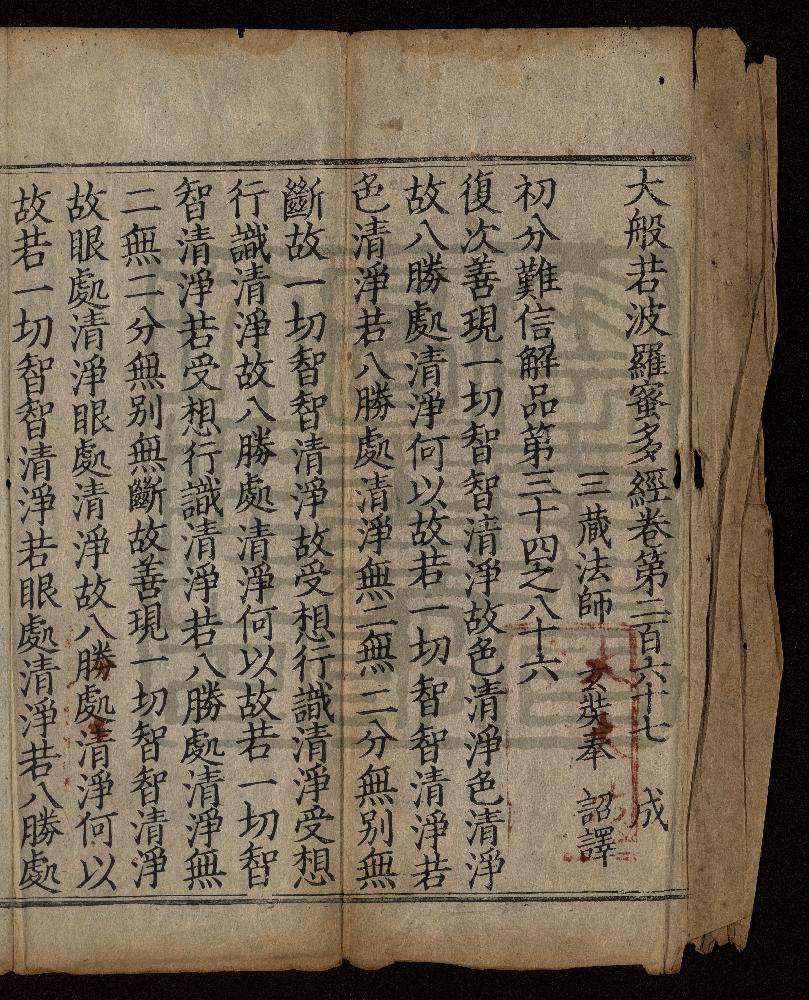 大般若波羅蜜多經卷第二百六十七 成
三藏法師 玄奘奉 詔譯
初分難信解品第三十四之八十六
復次善現一切智智清淨故色清淨色清淨
故八勝處清淨何以故若一切智智清淨若
色清淨若八勝處清淨無二無二分無別無
斷故一切智智清淨故受想行識清淨受想
行識清淨故八勝處清淨何以故若一切智
智清淨若受想行識清淨若八勝處清淨無
二無二分無別無斷故善現一切智智清淨
故眼處清淨眼處清淨故八勝處清淨何以
故若一切智智清淨若眼處清淨若八勝處